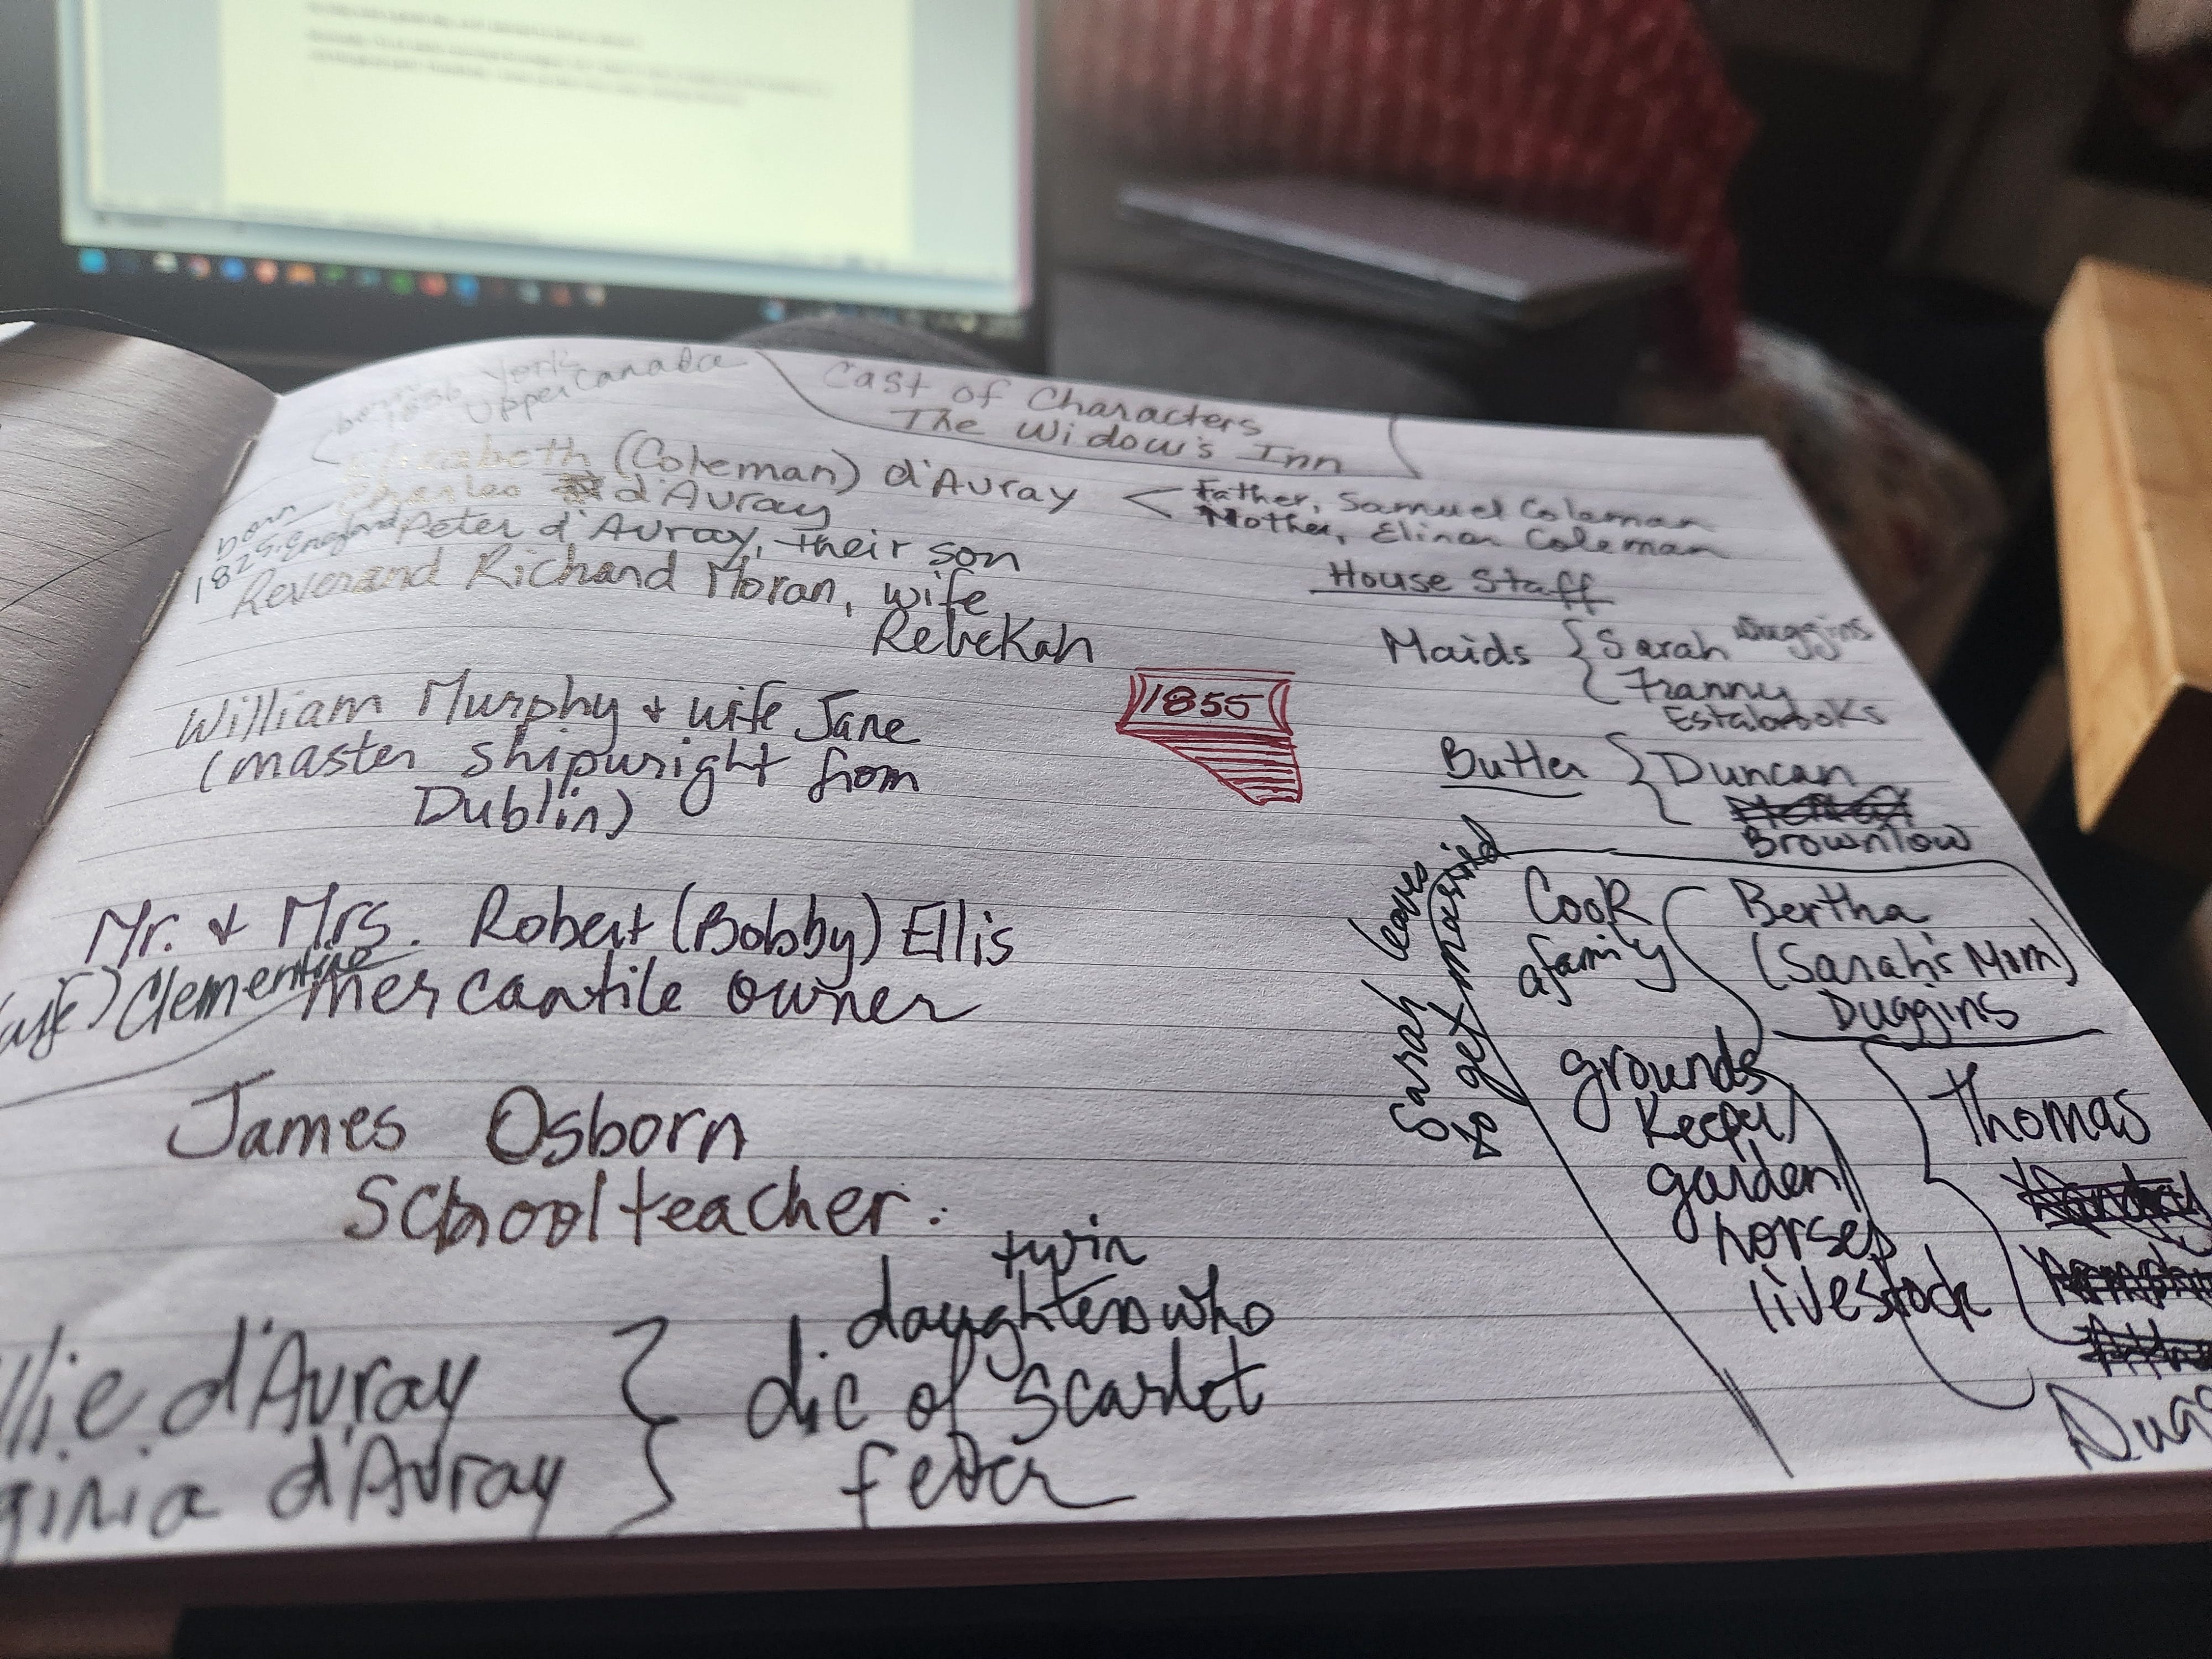 Cast of Characters
The Widow's Inn
born
1836 York
Upper Canada
Elizabeth (Coleman) d'Avray
Father, Samuel Coleman
Mother, Elinor Coleman
Charles d'Avray
born
1825, England
Peter d'Avray, their son
Reverand Richard Moran, wife
Rebekah
William Murphy & wife Jane
(master shipwright from
Dublin)
1855
Mr. & Mrs. Robert (Bobby) Ellis
Clementine
mercantile owner
James Osborn
Schoolteacher.
d'Avray
d'Avray
twin
daughters who
die of Scarlet
fever
House Staff
Maids
Sarah Duggins
Franny
Estabrooks
Butler
Duncan
Brownlow
Sarah leaves
to get married
Cook
family
Bertha
(Sarah's Mom)
Duggins
grounds
Keeper
garden
horses
livestock
Thomas